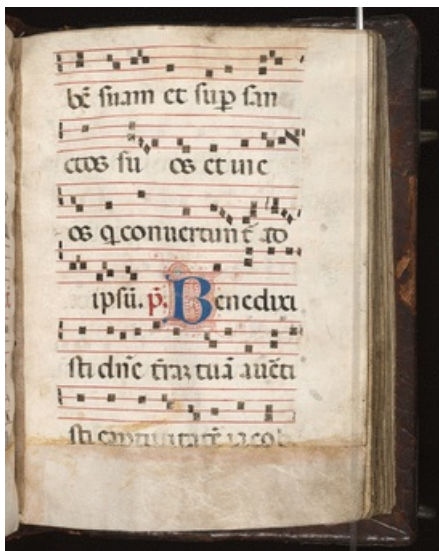 bē suam et suꝑ san
ctos su os et in e
os q conuertunt᷑ ad
ipsū. p̄. Benedixi
sti dn̄e t̄raʒ tuā au̅ti
sti captiuitatē iacob